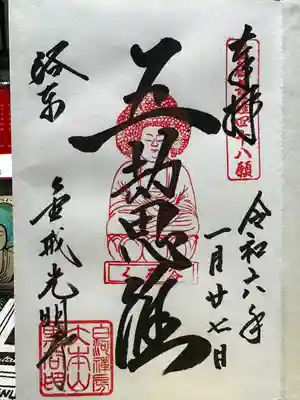 奉拝
令和六年
一月廿七日
五劫思惟
洛東
金戒光明寺
白河禅房
大本山